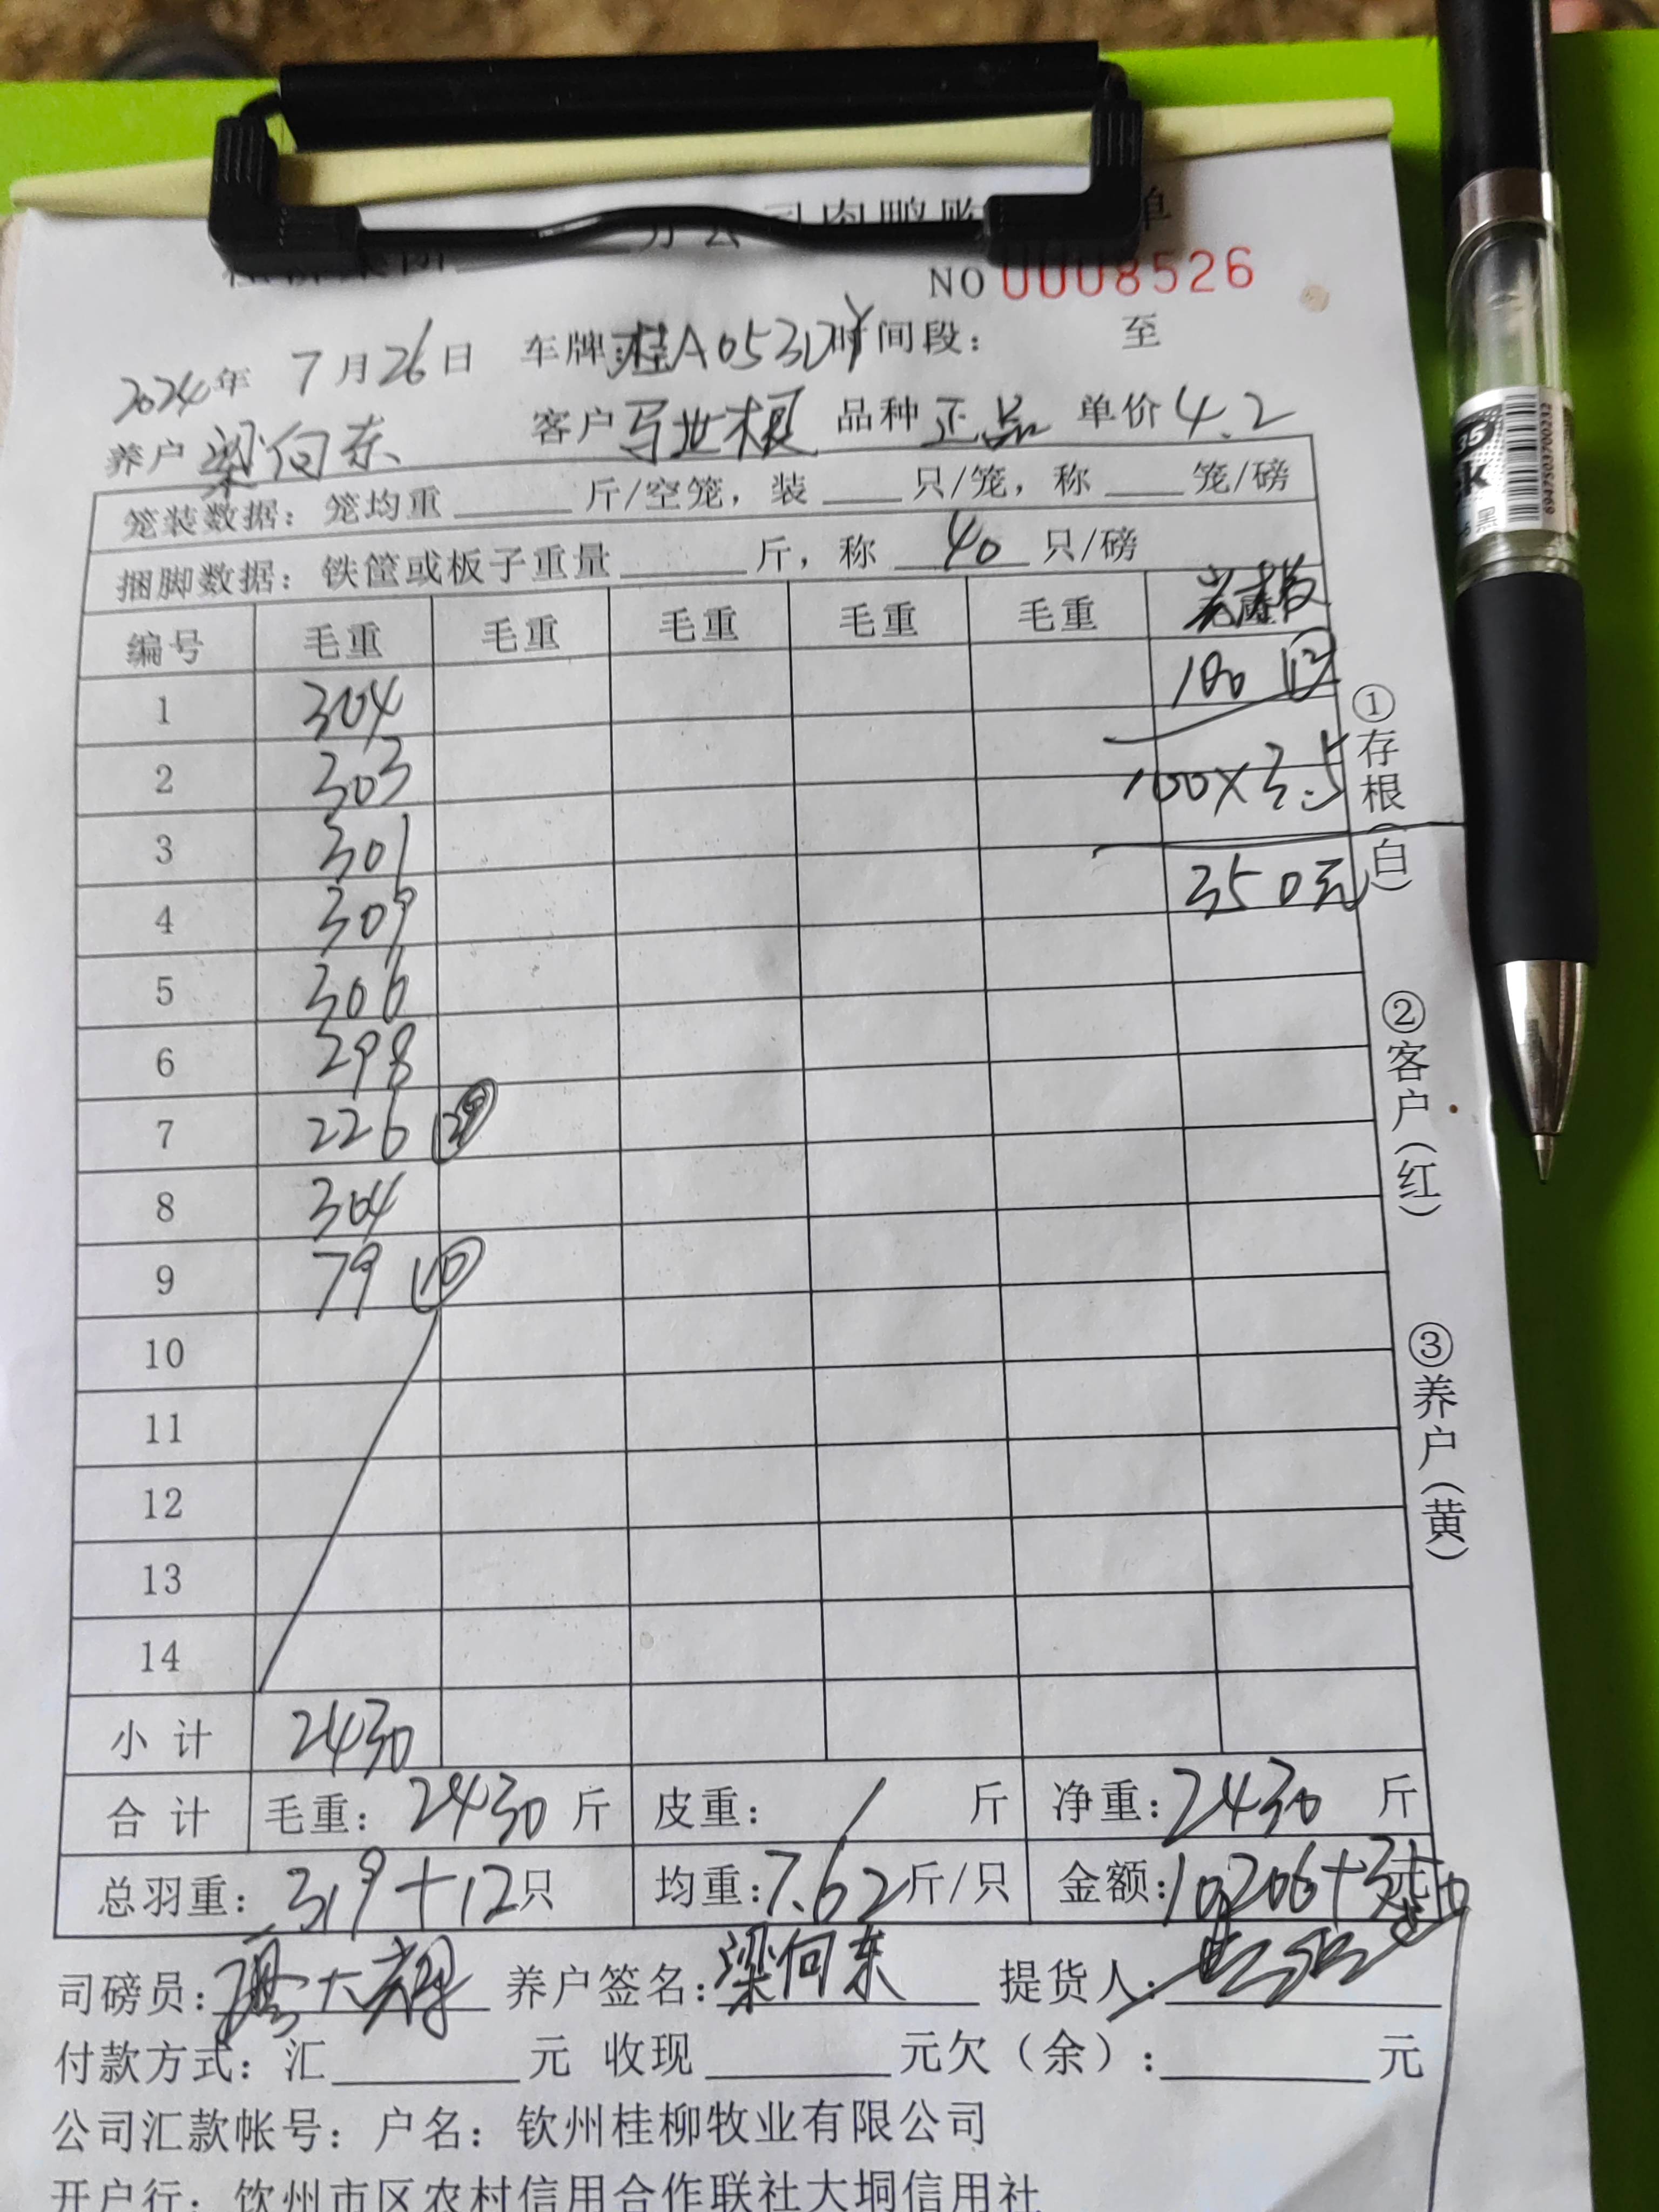 分公司肉鸭账单
NO 0008526
2024年 7月26日 车牌:桂A053DY 时间段: 至
养户 梁向东 客户 马业根 品种 正品 单价 4.2
笼装数据: 笼均重 斤/空笼, 装 只/笼, 称 笼/磅
捆脚数据: 铁筐或板子重量 斤, 称 40 只/磅
编号 毛重 毛重 毛重 毛重 毛重
1 304 100 ⑫
2 303 100×3.5
3 301 350元
4 309
5 306
6 298
7 226
8 304
9 79 ⑩
10
11
12
13
14
小计 2430
合计 毛重: 2430 斤 皮重: / 斤 净重: 2430 斤
总羽重: 319+12只 均重: 7.62斤/只 金额: 10206+350
司磅员: 养户签名: 梁向东 提货人:
付款方式: 汇 元 收现 元欠(余): 元
公司汇款帐号: 户名: 钦州桂柳牧业有限公司
开户行: 钦州市区农村信用合作联社大垌信用社
①存根(白)
②客户(红)
③养户(黄)